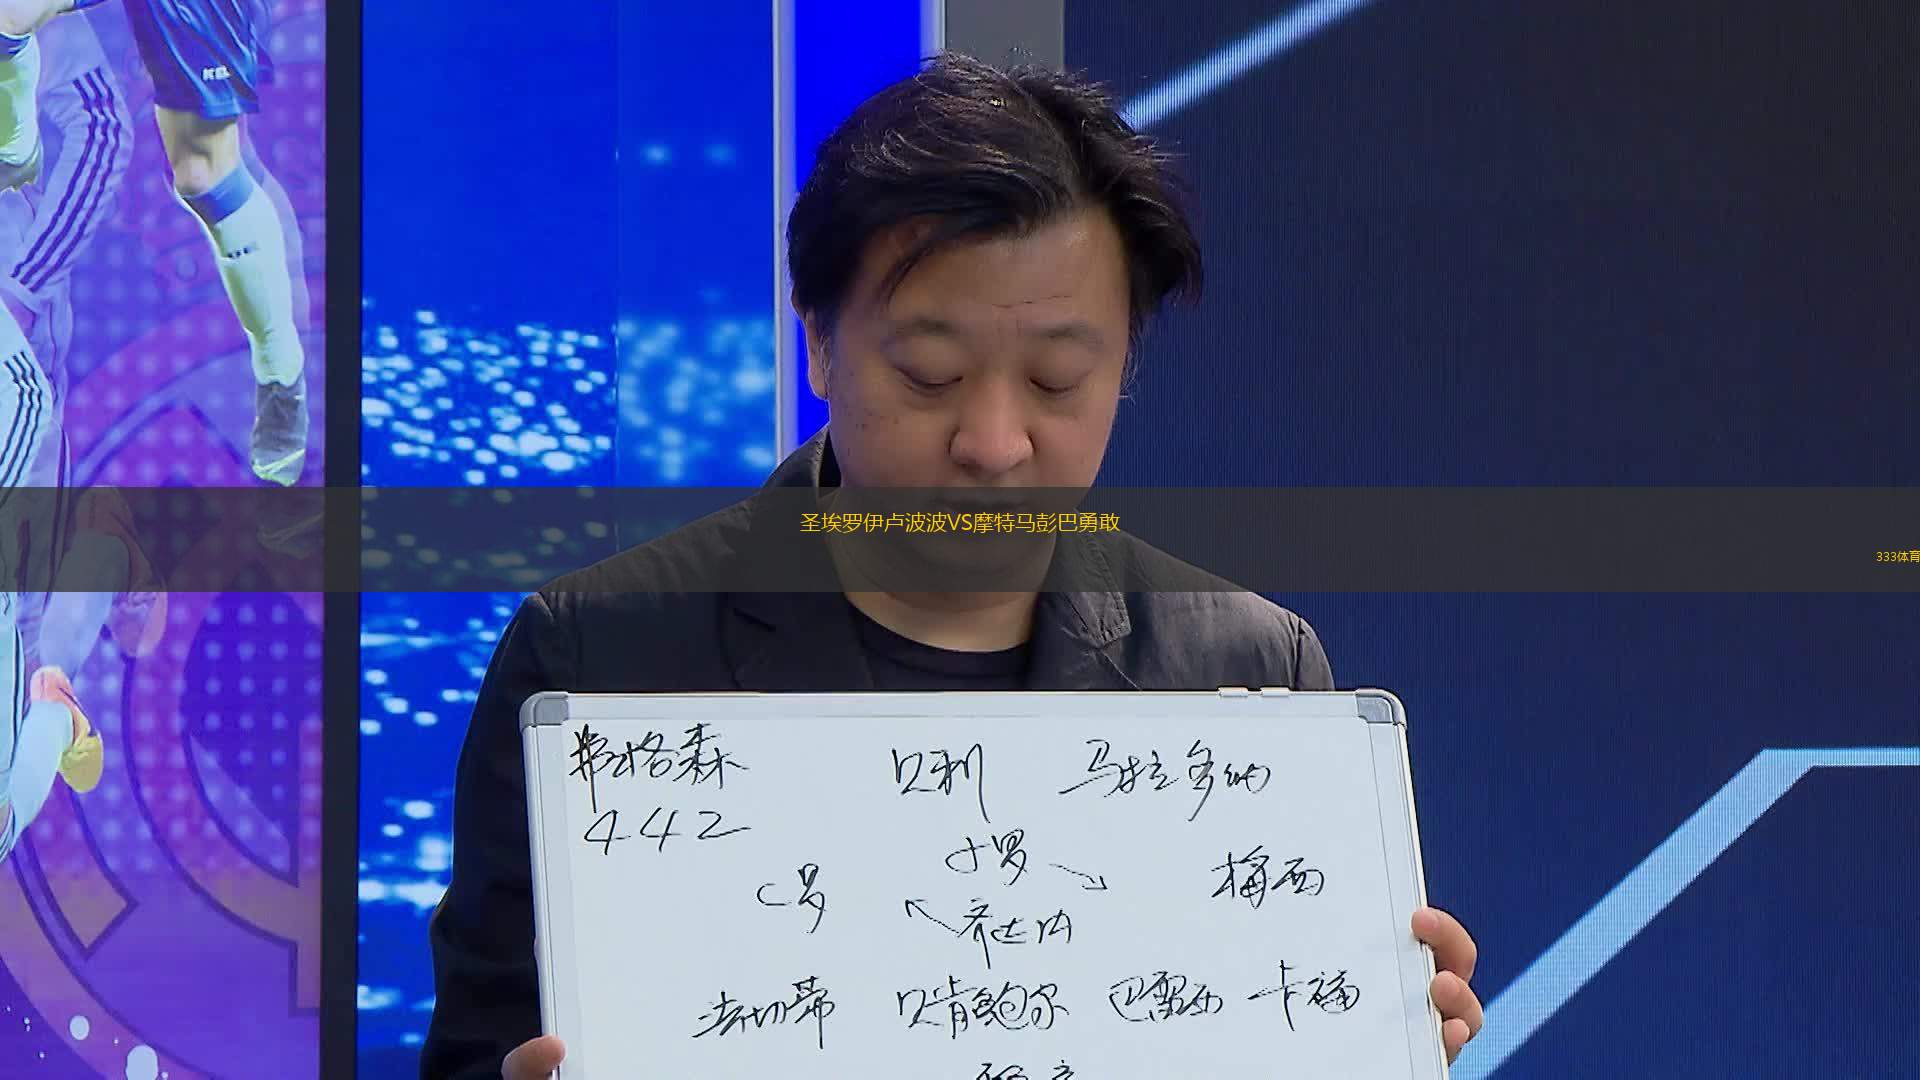 KEL
圣埃罗伊卢波波VS摩特马彭巴勇敢
333体育
弗格森 贝利 马拉多纳
442
小罗
C罗 梅西
齐达内
法切蒂 贝肯鲍尔 巴雷西 卡福